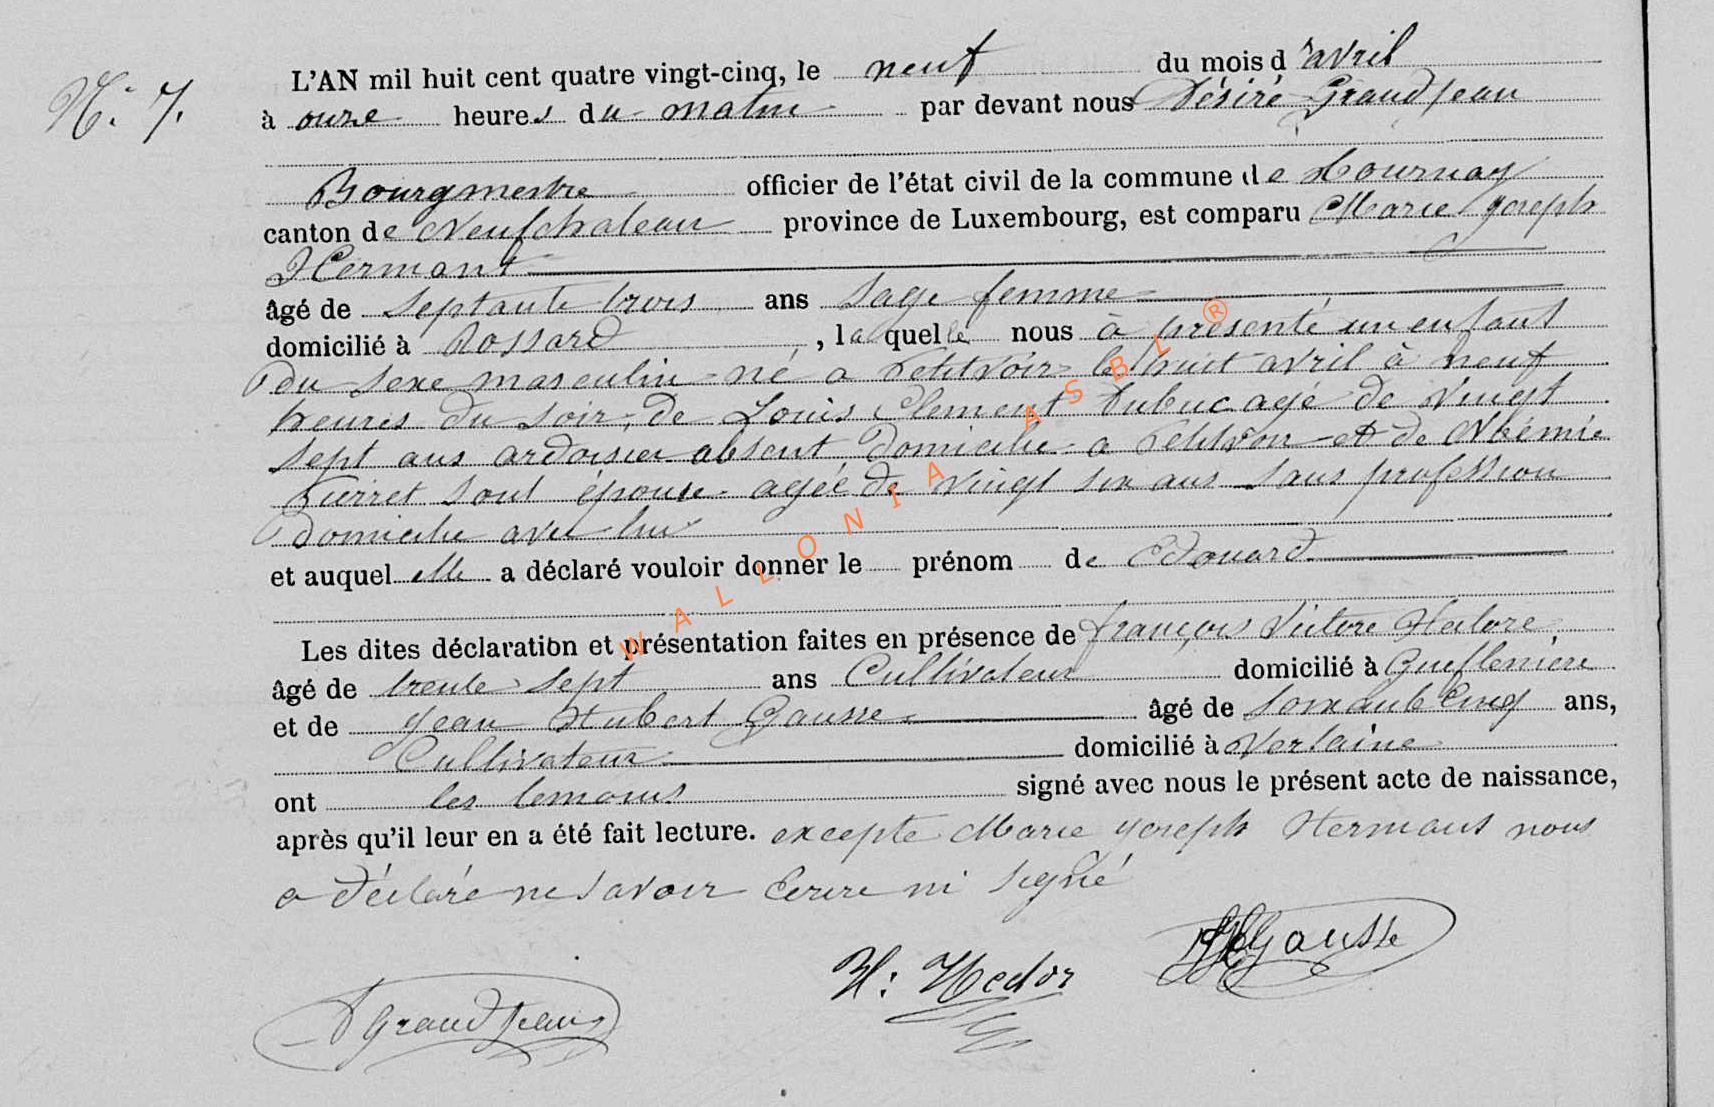 N.° 7.
L'AN mil huit cent quatre vingt-cinq, le neuf du mois d'avril
à onze heures du matin par devant nous Désiré Grandjean
Bourgmestre officier de l'état civil de la commune de Tournay
canton de Neufchateau province de Luxembourg, est comparu Marie Joseph
Hermant
âgé de septante trois ans sage femme
domicilié à Rossard, laquelle nous à présenté un enfant
du sexe masculin né a Petitvoir le huit avril à neuf
heures du soir, de Louis Clement Dubuc agé de vingt
sept ans ardoisier absent domicilie a Petitvoir et de Noémie
Pierret sont épouse agée de vingt six ans sans profession
domicilie avec lui
et auquel elle a déclaré vouloir donner le prénom de Edouard
Les dites déclaration et présentation faites en présence de françois Victore
âgé de trente sept ans Cultivateur domicilié à
et de Jean Hubert Gausse âgé de soixante cinq ans,
Cultivateur domicilié à Verlaine
ont les temoins signé avec nous le présent acte de naissance,
après qu'il leur en a été fait lecture. excepte Marie Joseph Hermant nous
a déclaré ne savoir Ecrire ni signé
Gausse
H: Hector
D Grandjean
WALLONIA ASBL ®